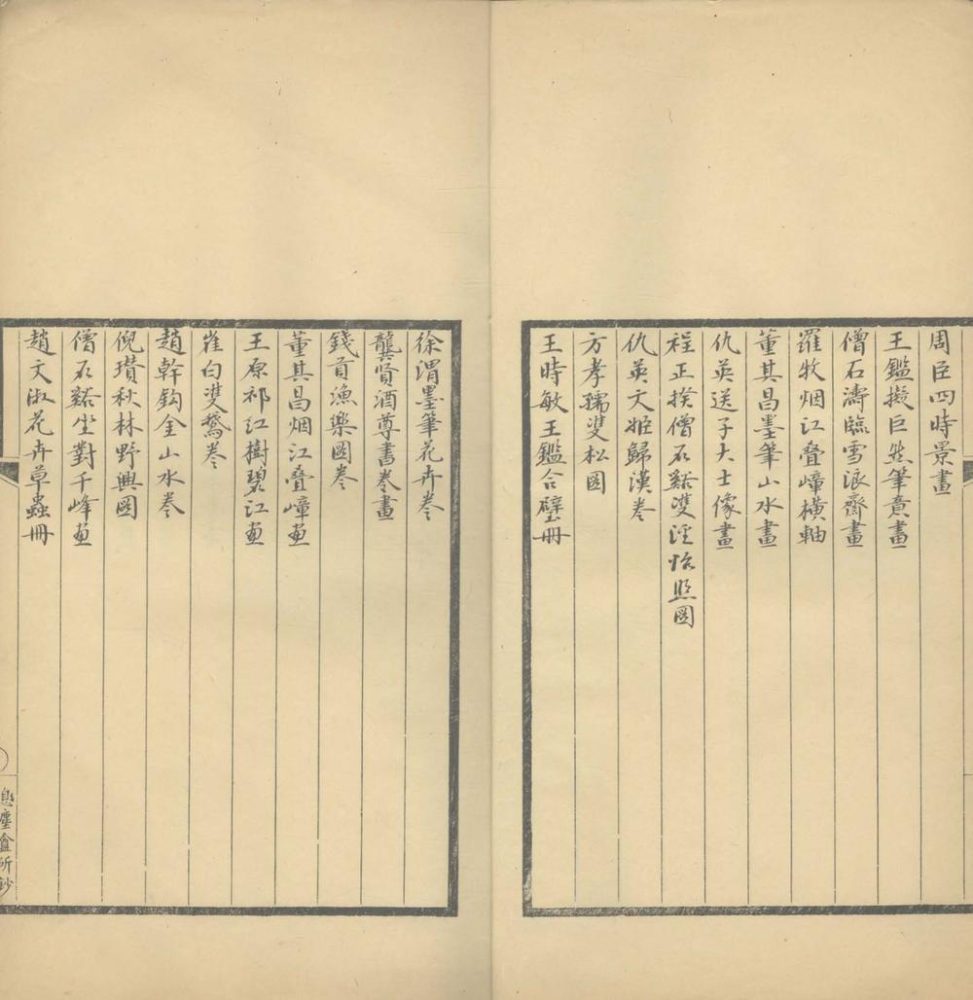 周臣四時景畫
王鑑擬巨然筆意畫
僧石濤臨雪浪齋畫
羅牧烟江疊嶂橫軸
董其昌墨筆山水畫
仇英送子大士像畫
程正揆僧石谿雙溪怡照圖
仇英文姬歸漢卷
方孝孺雙松圖
王時敏王鑑合璧冊
徐渭墨筆花卉卷
龔賢酒尊書卷畫
錢貢漁樂圖卷
董其昌烟江疊嶂画
王原祁江樹碧江画
崔白雙鵞卷
趙幹鈎金山水卷
倪瓚秋林野興圖
僧石谿坐對千峰画
趙文淑花卉草蟲冊
息塵盦所鈔